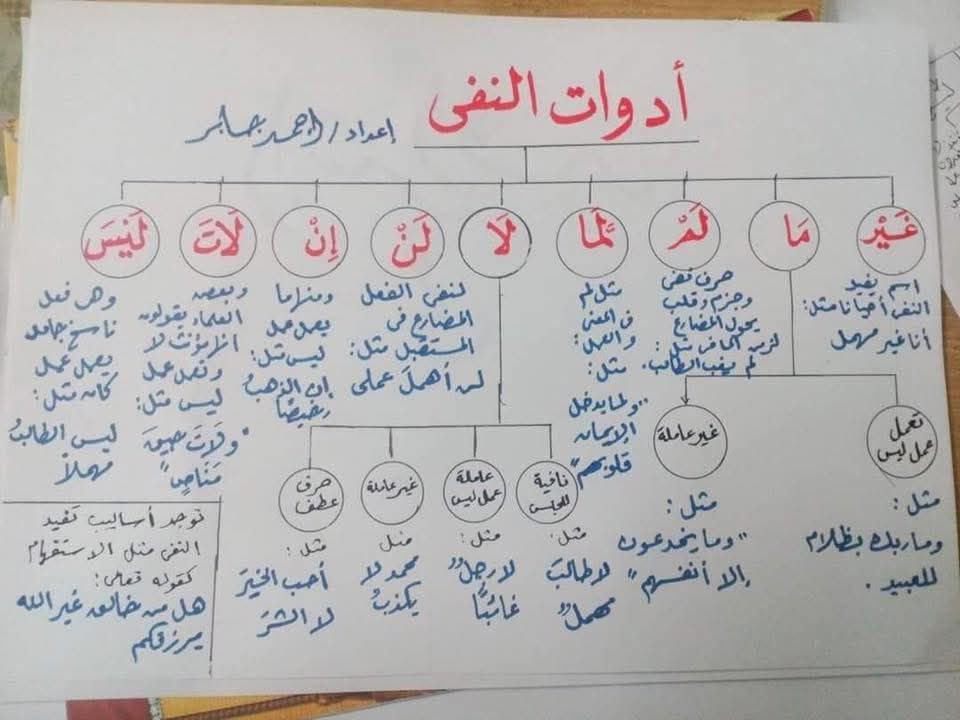 أدوات النفى
إعداد / أحمد جابر
غَيْر
اسم يفيد
النفى أحيانا مثل:
أنا غير مهمل
مَا
تعمل
عمل ليس
مثل:
وما ربك بظلام
للعبيد.
غير عاملة
مثل:
"وما يخدعون
إلا أنفسهم"
لَمْ
حرف نفى
وجزم وقلب
يحول المضارع
لزمن الماضى مثل:
لم يغب الطالب.
لَمَّا
مثل لم
فى المعنى
والعمل:
مثل:
"ولما يدخل
الإيمان
قلوبهم"
لَا
نافية
للجنس
مثل:
لا طالبَ
مهملٌ
عاملة
عمل ليس
مثل:
لا رجلٌ
غائبًا
غير عاملة
مثل
محمد لا
يكذبُ
حرف
عطف
مثل:
أحب الخيرَ
لا الشرَ
لَنْ
لنفى الفعل
المضارع فى
المستقبل مثل:
لن أهملَ عملى
إِنْ
ومنها ما
يعمل عمل
ليس مثل:
إن الذهبُ
رخيصًا
لَاتَ
وبعض
العلماء يقولون
انها مؤنث لا
وتعمل عمل
ليس مثل:
"ولَاتَ حينَ
مَنَاصٍ"
لَيْسَ
وهى فعل
ناسخ جامد
يعمل عمل
كان مثل:
ليس الطالبُ
مهملاً
توجد أساليب تفيد
النفى مثل الاستفهام
كقوله تعالى:
هل من خالق غير الله
يرزقكم